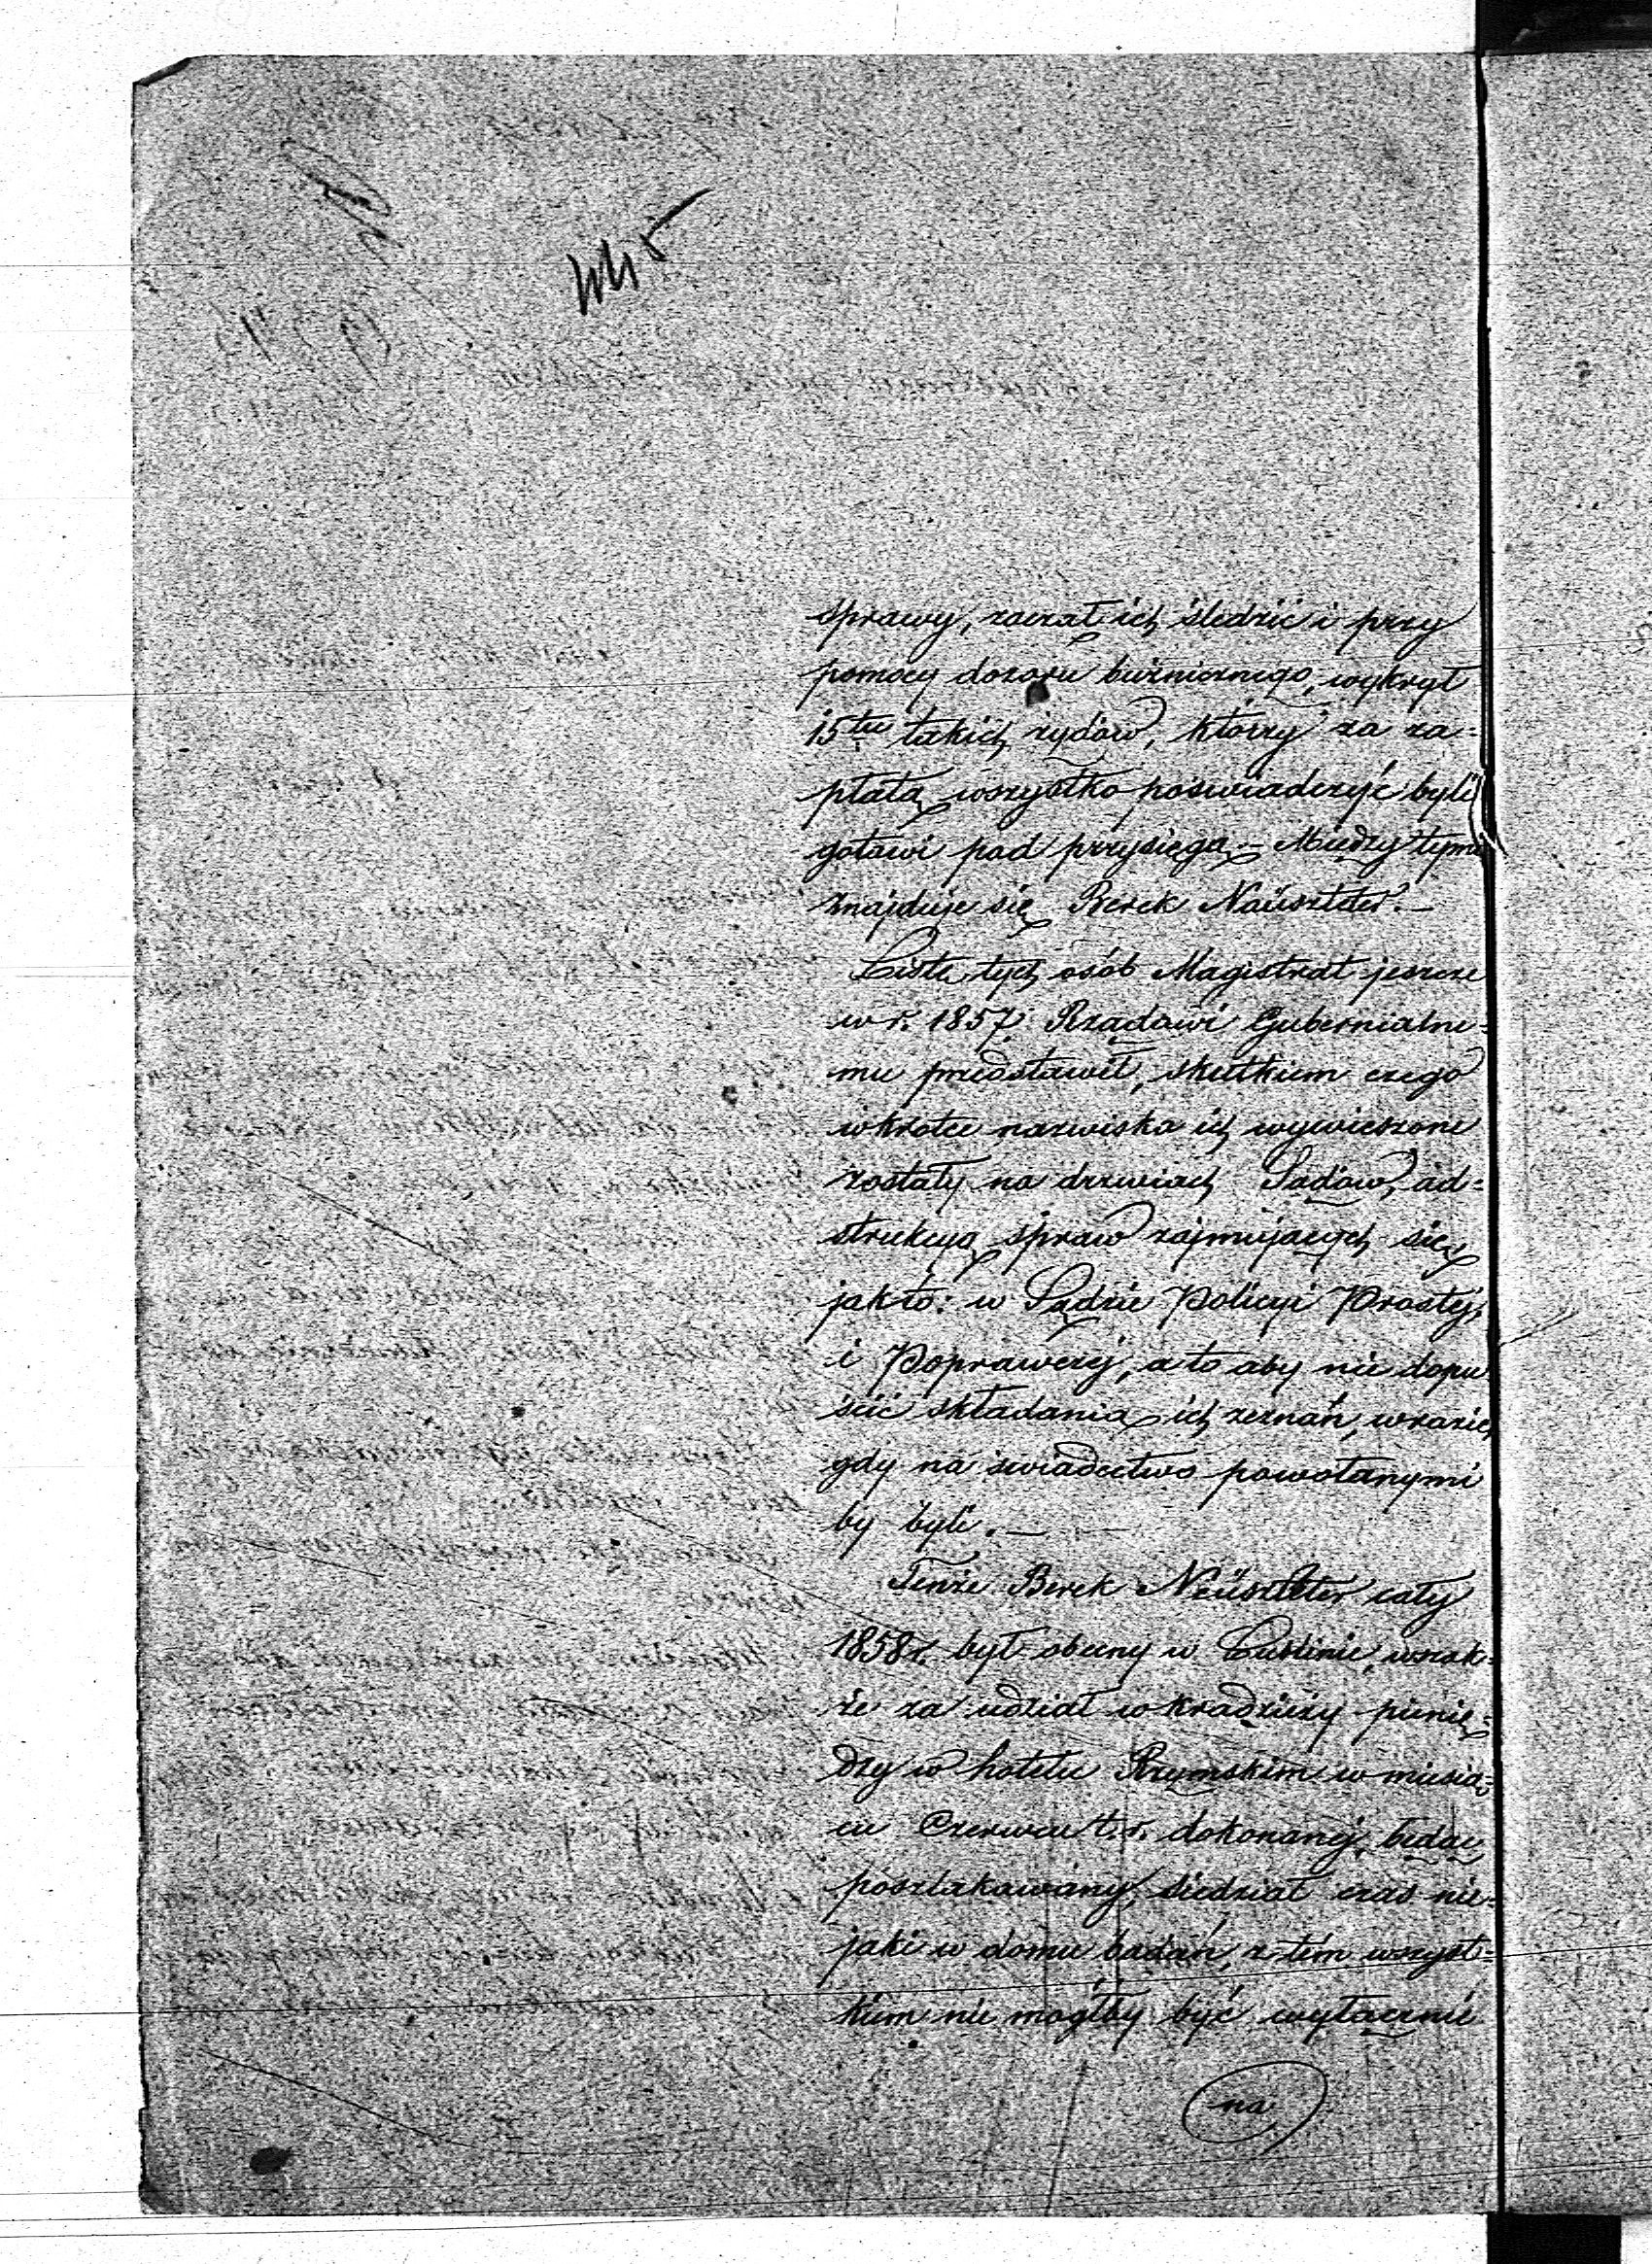 sprawy, zaczął ich śledzić i przy
pomocy dozoru bużnicznego, wykrył
15tu takich żydów, którzy za za=
płatą wszystko poświadczyć byli
gotowi pod przysięgą. – Między tymi
znajduje się Berek Naüszteter. –
Listę tych osób Magistrat jeszcze
w r. 1857. Rządowi Gubernialne=
mu przedstawił, skutkiem czego
wkrótce nazwiska ich wywieszone
zostały na drzwiach Sądów, ad=
strukcyą spraw zajmujących się
jak to: w Sądzie Policyi Prostej,
i Poprawczej, a to aby nie dopu
ścić składania ich zeznań, w razie
gdy na świadectwo powołanymi
by byli. –
Tenże Berek Neüszteter cały
1858 r. był obecny w Lublinie, wszak=
że za udział w kradzieży pienię=
dzy w hotelu Rzymskim w miesią=
cu Czerwcu t. r. dokonanej, będąc
poszlakowany, siedział czas nie=
jaki w domu badań, z tém wszyst=
kiem nie mógłby być wyłącznie
na